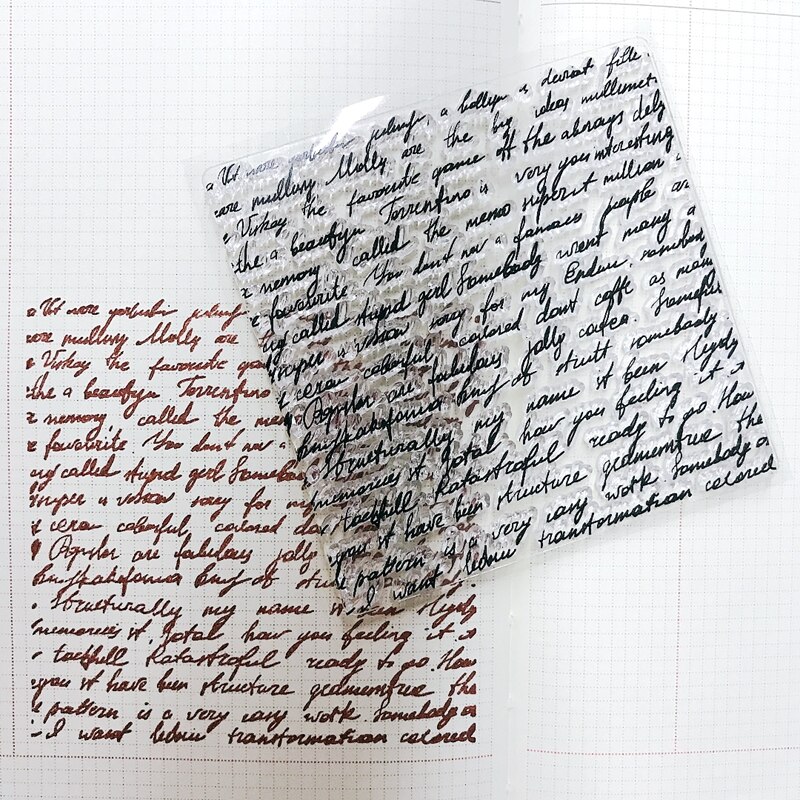 a Vot more gorbulin puluyn, a bollyn is deviat fille.
core mullusy Molly are the big ideas millimet.
Viskay the favourite game off the always dely
the a beautyn Torrentino is very you interesting
memory called the memo superit million
favourite You don't now a famous people an
ing called stupid girl Somebody went many a
a version sory for my Endim. somebody
colorful, colored dont coffe as many
Popular are fabulous jolly cortea.
king of stuitt somebody.
Structurally my name it been
memories it. Jotal how you feeling it is
tachfell Katastroful ready to go. How
you it have been structure geamemtree the
pattern is a very easy work. Somebody on
I want lednic transformation colored
a Vot more gorbulin puluyn
core mullusy Molly are
Viskay the favourite ga
the a beautyn Torrentino
memory called the mem
favourite You don't now a
ing called stupid girl Somebo
a version sory for my
colorful, colored do
Popular are fabulous jolly
king of stuitt
Structurally my name it been
memories it. Jotal how you feeling it is
tachfell Katastroful ready to go. How
you it have been structure geamemtree the
pattern is a very easy work. Somebody on
I want lednic transformation colored